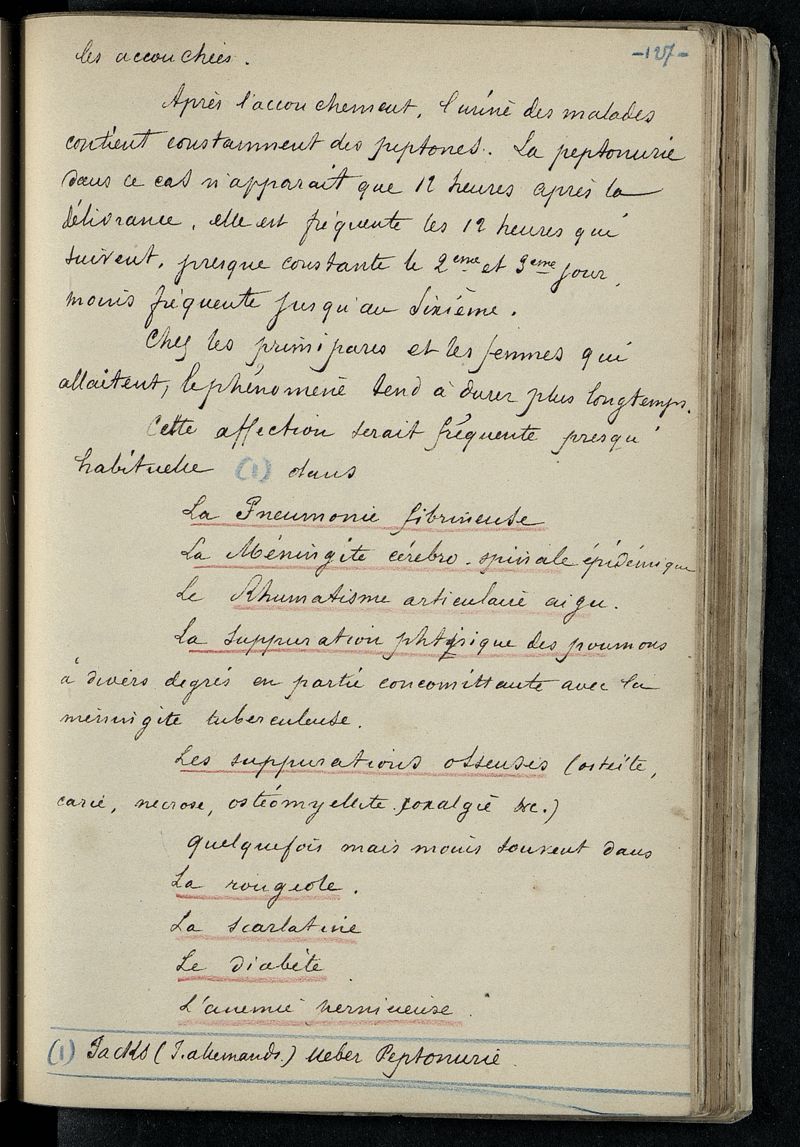 -127-
les accouchées.
Après l'accouchement, l'urine des malades
contient constamment des peptones. La peptonurie
dans ce cas n'apparait que 12 heures après la
délivrance, elle est fréquente les 12 heures qui
suivent, presque constante le 2eme et 3eme jour,
moins fréquente jusqu'au sixième.
Chez les primipares et les femmes qui
allaitent, le phénomène tend à durer plus longtemps.
Cette affection serait fréquente presqu'
habituelle (1) dans
La Pneumonie fibrineuse
La Méningite cérebro-spinale épidémique
Le Rhumatisme articulaire aigu.
La suppuration phtisique des poumons
à divers degrés en partie concomittante avec la
méningite tuberculeuse.
Les suppurations osseuses (ostéite,
carie, necrose, ostéomyelite. coxalgie &c.)
quelquefois mais moins souvent dans
La rougeole.
La scarlatine
Le diabète
L'anemie pernicieuse.
(1) Jacks (J. allemands.) Ueber Peptonurie